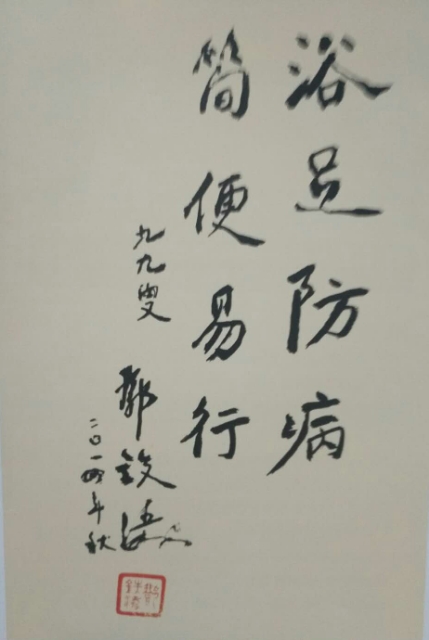 浴足防病
简便易行
九九叟
邓铁涛
二〇一四年秋